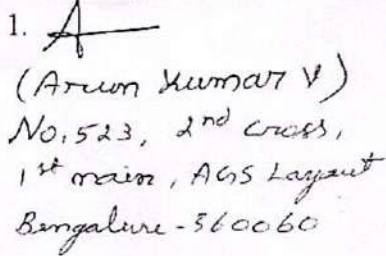 1.
(Arun Kumar V)
No. 523, 2nd cross,
1st main, AGS Layout
Bengaluru - 560060